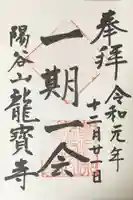 奉拝
令和元年
十二月廿一日
一期一会
陽谷山
龍寳寺